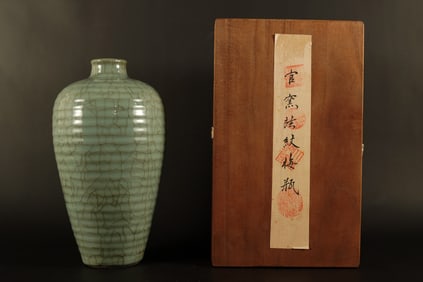 官窯弦紋梅瓶